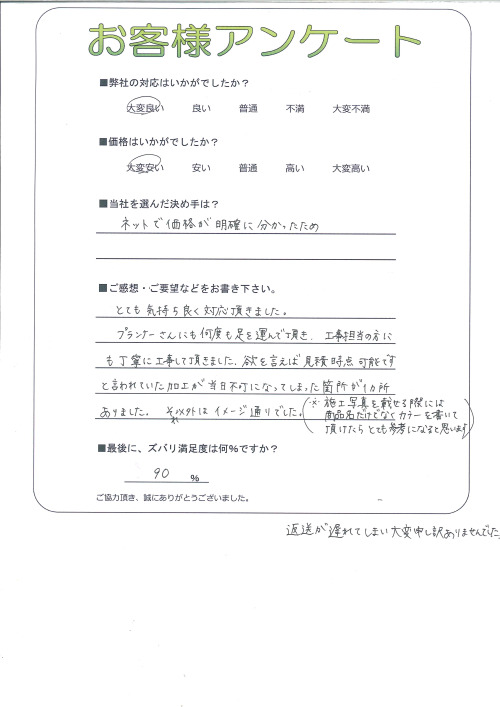 お客様アンケート
■弊社の対応はいかがでしたか？
大変良い 良い 普通 不満 大変不満
■価格はいかがでしたか？
大変安い 安い 普通 高い 大変高い
■当社を選んだ決め手は？
ネットで価格が明確に分かったため
■ご感想・ご要望などをお書き下さい。
とても気持ち良く対応頂きました。
プランナーさんにも何度も足を運んで頂き、工事担当の方に
も丁寧に工事して頂きました。欲を言えば見積時点可能です
と言われていた加工が当日不可になってしまった箇所が1カ所
ありました。それ以外はイメージ通りでした。
(※施工写真を載せる際には
商品名だけでなくカラーを書いて
頂けたらとても参考になると思います)
■最後に、ズバリ満足度は何%ですか？
90 %
ご協力頂き、誠にありがとうございました。
返送が遅れてしまい大変申し訳ありませんでした。